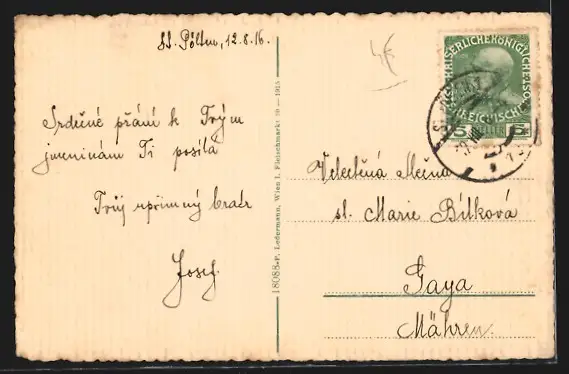 St. Pölten, 12.8.16.
Srdečné přání k Tvým
jmeninám Ti posílá
Tvůj upřimný bratr
Josef.
18088-P. Ledermann, Wien I. Fleischmarkt 20 — 1915
4€
KAISERLICHEKÖNIGLICHE
REICHISCHE
5 HELLER 5
Velectěná slečna
sl. Marie Bílková
Gaya
Mähren.